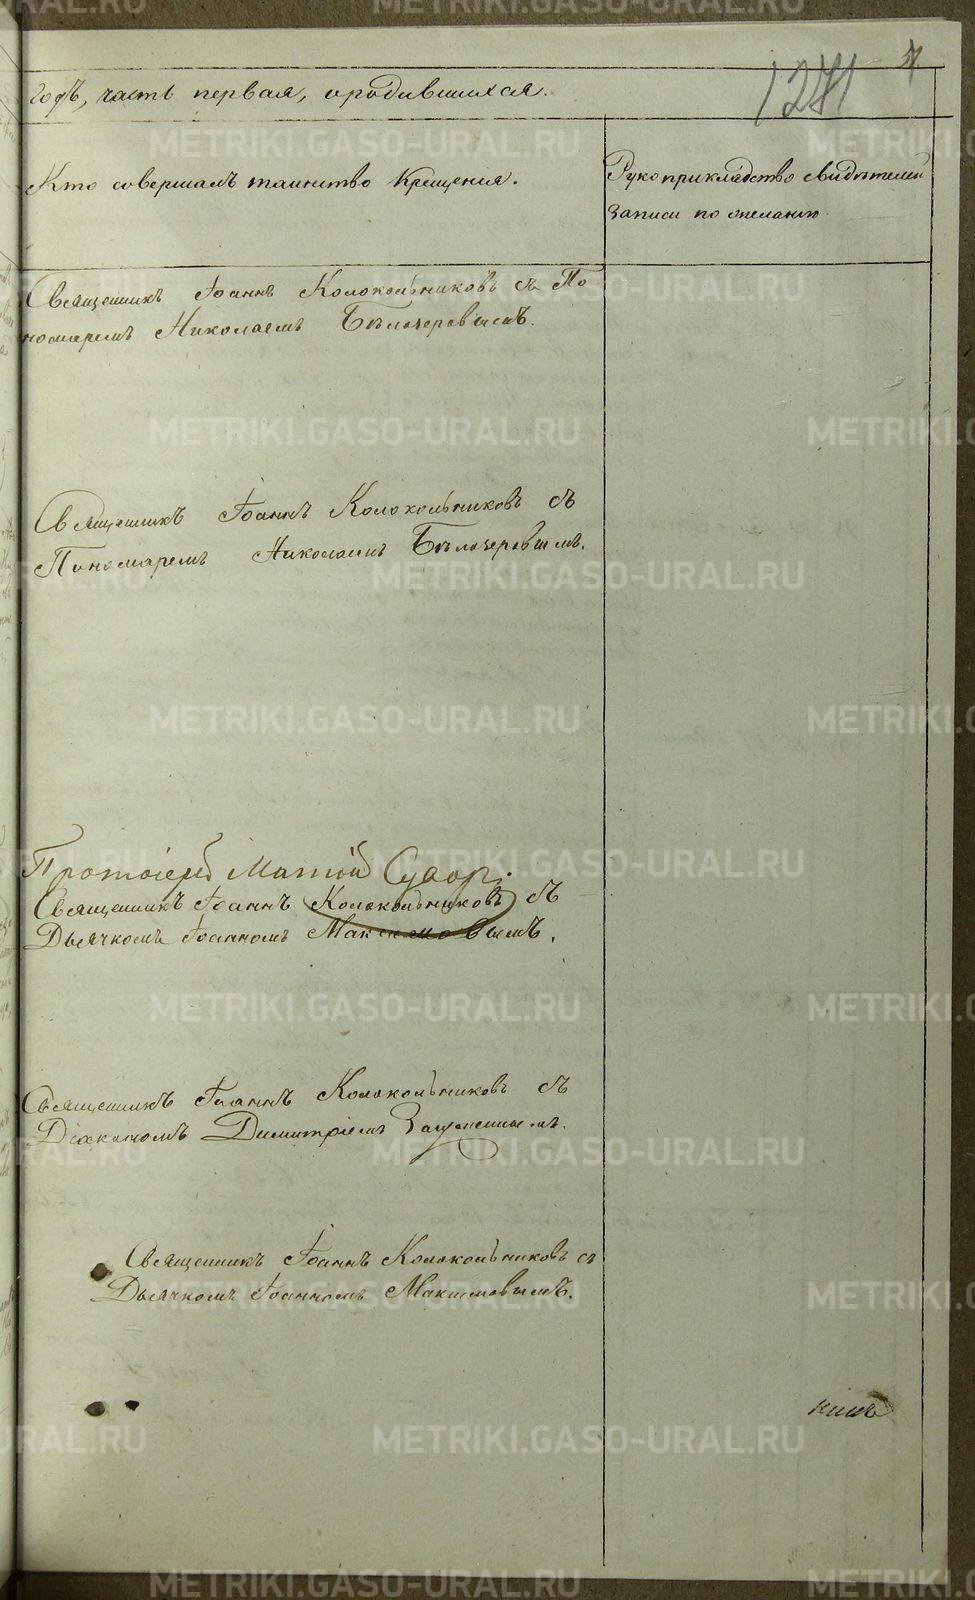 1281
годъ, часть первая, о родившихся.
Кто совершалъ таинство крещенія.
Рукоприкладство свидѣтелей
записи по желанію.
Священникъ Іоаннъ Колокольниковъ съ По
номаремъ Николаемъ Бѣлозеровымъ.
Священникъ Іоаннъ Колокольниковъ съ
Пономаремъ Николаемъ Бѣлозеровымъ.
Протоіерей
Священникъ Іоаннъ Колокольниковъ съ
Дьячкомъ Іоанномъ Максимовымъ.
Священникъ Іоаннъ Колокольниковъ съ
Діакономъ Димитріемъ
Священникъ Іоаннъ Колокольниковъ съ
Дьячкомъ Іоанномъ Максимовымъ.
METRIKI.GASO-URAL.RU